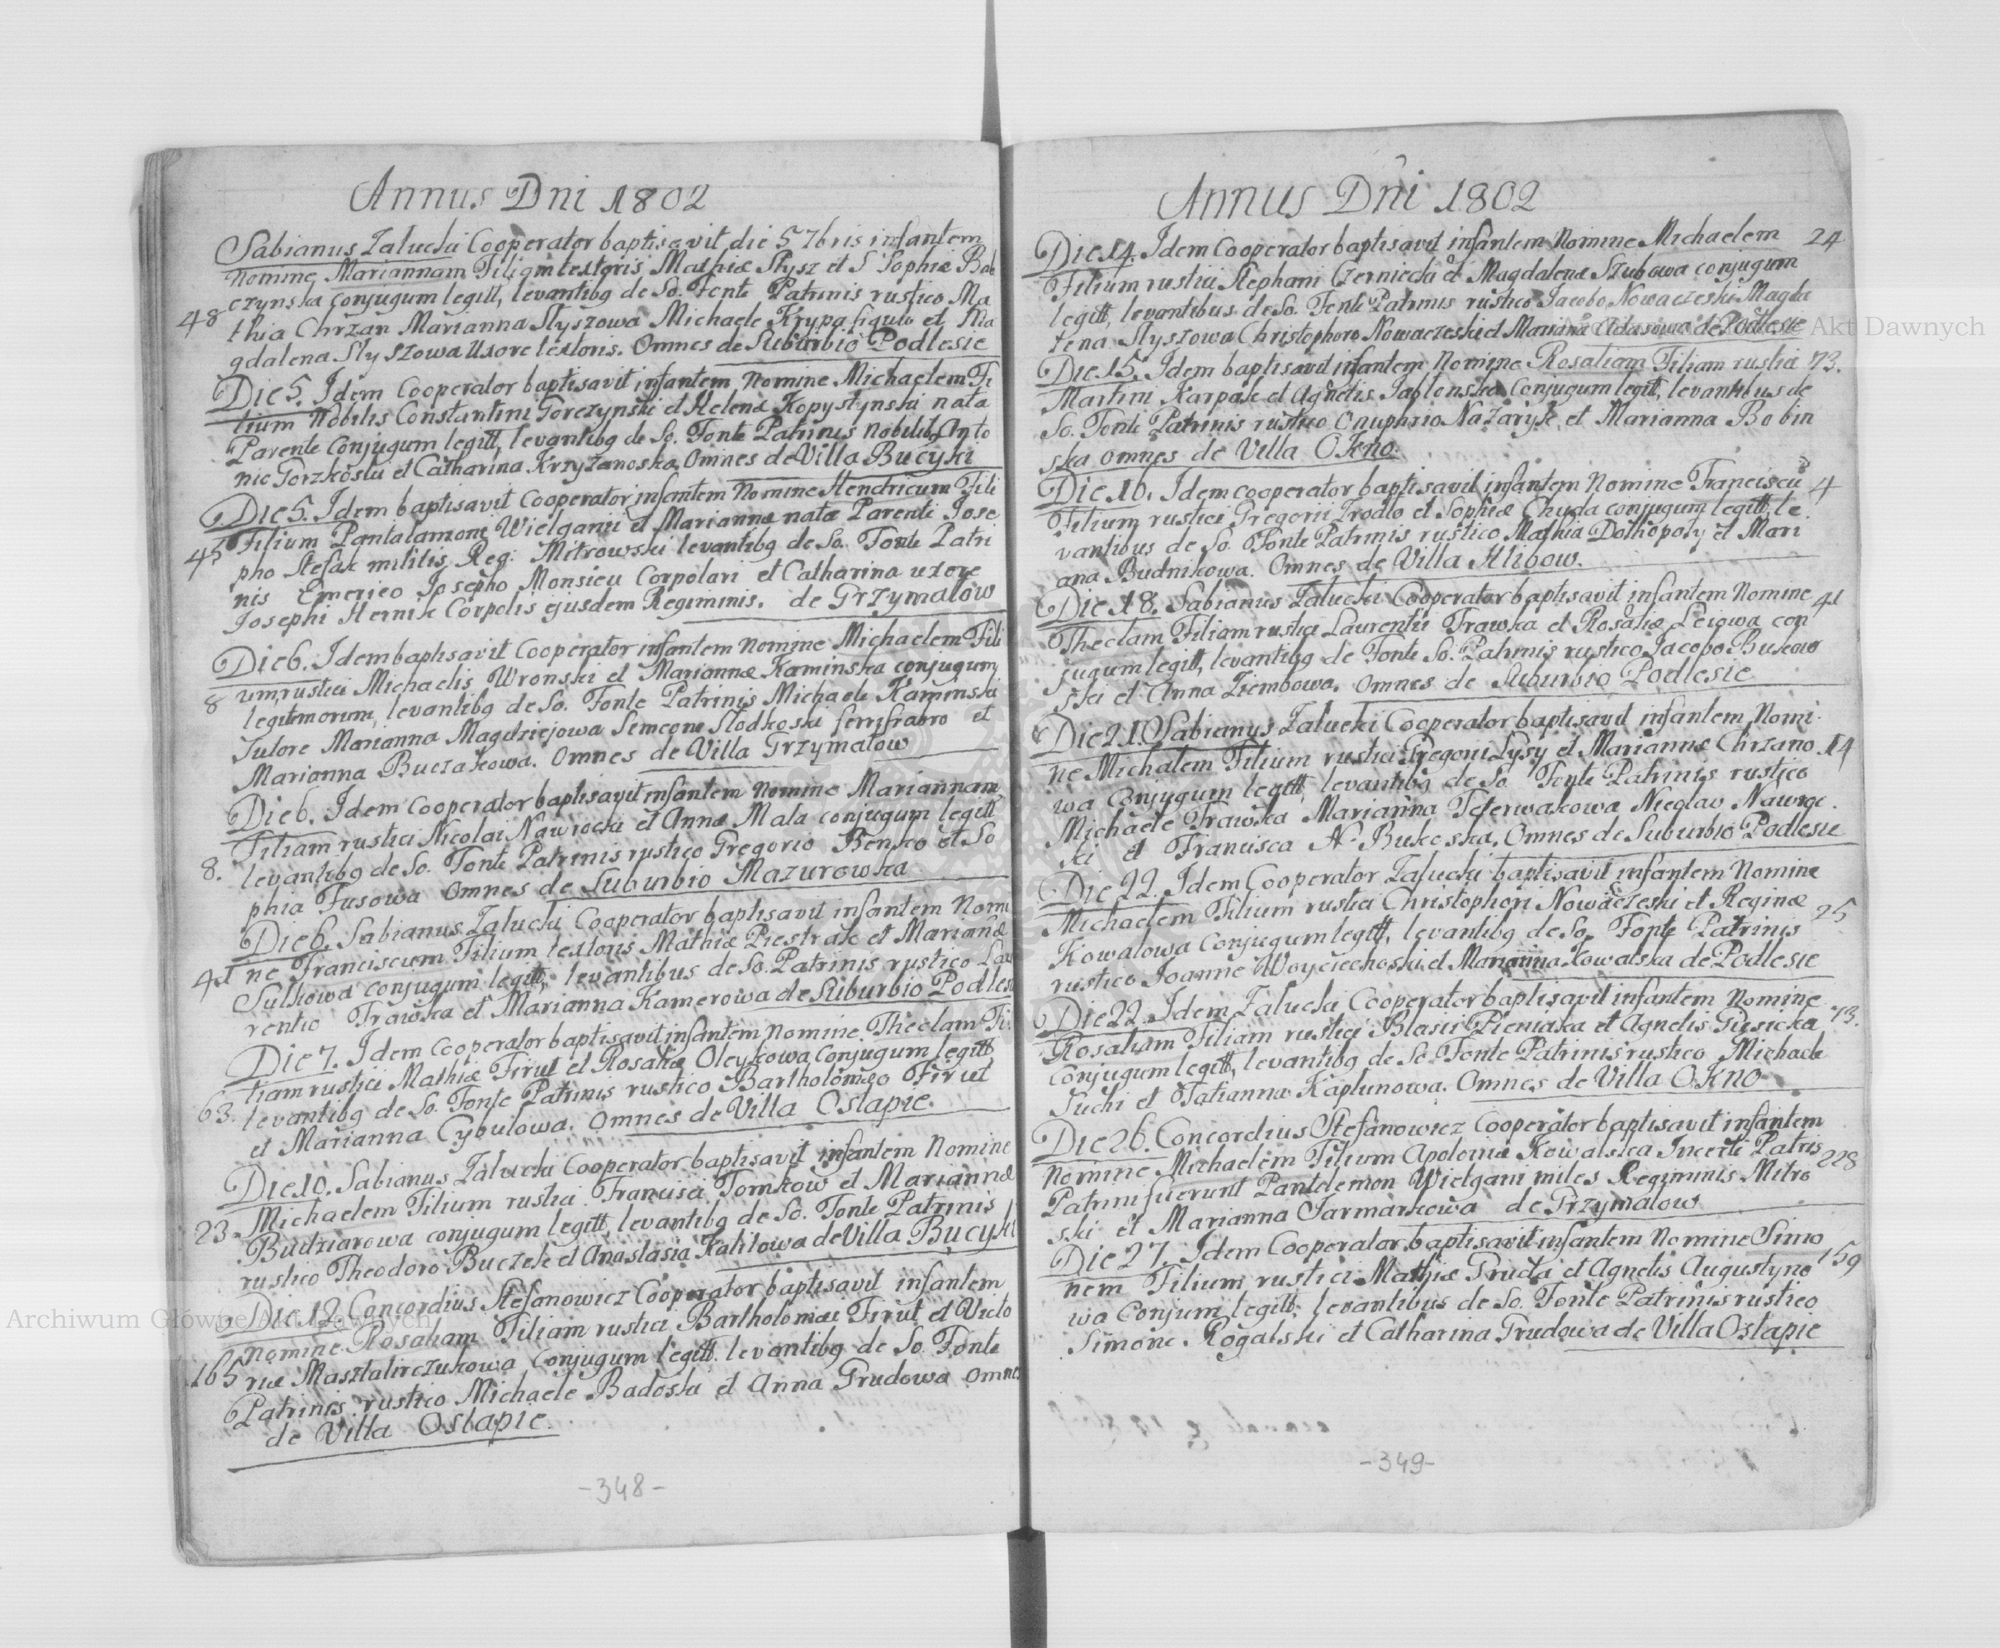 Annus Dni 1802
Fabianus Załucki Cooperator baptisavit die 5 7bris infantem
nomine Mariannam Filiam textoris Mathiæ Słysz et S Sophiæ Bab
czynska conjugum legitt, levantibg de So. Fonte Patrinis rustico Ma
48 thia Chrzan Marianna Słyszowa Michaele Krypa figulo et Ma
gdalena Słyszowa Uxore textoris. Omnes de Suburbio Podlesie
Die 5. Idem Cooperator baptisavit infantem Nomine Michaelem Fi
lium Nobilis Constantini Gorczynski et Helenæ Kopystynski nata
Parente Conjugum legitt, levantibg de So. Fonte Patrinis Nobilibg Anto
nio Gorzkoski et Catharina Krzyżanoska Omnes de Villa Bucyki
Die 5. Idem baptisavit Cooperator infantem Nomine Hendricum Fili
Filium Pantalamone Wielganii et Mariannæ natæ Parenti Jose
45 pho Stefak militis Reg: Mitrowski levantibg de So. Fonte Patri
nis Emerico Josepho Monsieu Corpolari et Catharina uxore
Josephi Hernik Corpolis ejusdem Regiminis. de Grzymałow
Die 6. Idem baptisavit Cooperator infantem Nomine Michaelem Fili
um rustici Michaelis Wronski et Mariannæ Kaminska conjugum
8 legitimorum, levantibg de So. Fonte Patrinis Michaele Kaminski
Sutore Marianna Magdziejowa Semeone Słodkoski ferrifabro et
Marianna Buczakowa. Omnes de Villa Grzymalow
Die 6. Idem Cooperator baptisavit infantem Nomine Mariannam
Filiam rustici Nicolai Nawrocki et Annæ Mala conjugum legitt
8. levantibg de So. Fonte Patrinis rustico Gregorio Benko et So
phia Fusowa Omnes de Suburbio Mazurowka
Die 6. Fabianus Załucki Cooperator baptisavit infantem Nomi
ne Franciscum Filium textoris Mathiæ Piestrak et Mariañæ
41 Sulkowa conjugum legitt, levantibus de So. Patrinis rustico Lau
rentio Trawka et Marianna Kamerowa de Suburbio Podles
Die 7. Idem Cooperator baptisavit infantem Nomine Theclam Fi
liam rustici Mathiæ Firut et Rosaliæ Oleykowa Conjugum legitt
63. levantibg de So. Fonte Patrinis rustico Bartholomæo Firut
et Marianna Cybulowa. Omnes de Villa Ostapie.
Die 10. Fabianus Załucki Cooperator baptisavit infantem Nomine
Michaelem Filium rustici Francisci Tomkow et Mariannæ
23. Budziarowa conjugum legitt, levantibg de So. Fonte Patrinis
rustico Theodoro Buczek et Anastasia Kalitowa de Villa Bucyki
Die 12 Concordius Stefanowicz Cooperator baptisavit infantem
nomine Rosaliam Filiam rustici Bartholomæi Firut et Victo
165 riæ Masztalirczukowa Conjugum legitt. levantibg de So. Fonte
Patrinis rustico Michaele Badoski et Anna Grudowa Omnes
de Villa Ostapie.
-348-
Annus Dni 1802
Die 14. Idem Cooperator baptisavit infantem Nomine Michaelem 24
Filium rustici Stephani Czernicki et Magdalenæ Szubowa conjugum
legitt, levantibus de So. Fonte Patrinis rustico Jacobo Nowaczeski Magda
lena Słyszowa Christophoro Nowaczeski et Mariana Adasowa de Podlesie
Die 15. Idem baptisavit infantem Nomine Rosaliam Filiam rustici 73.
Martini Karpak et Agnetis Jablonska Conjugum legitt, levantibus de
So. Fonte Patrinis rustico Onuphrio Nazaryk et Marianna Bobin
ska omnes de Villa Okno
Die 16. Idem cooperator baptisavit infantem Nomine Franciscũ 4
Filium rustici Gregorii Zrodlo et Sophiæ Chuda conjugum legitt, le
vantibus de So. Fonte Patrinis rustico Mathia Dothopoły et Mari
ana Budnikowa. Omnes de Villa Hlibow.
Die 18. Fabianus Załucki Cooperator baptisavit infantem Nomine 41
Theclam Filiam rustici Laurentii Trawka et Rosaliæ Lciowa con
jugum legitt, levantibg de Fonte So. Patrinis rustico Jacobo Bukow
ski et Anna Ziembowa. Omnes de Suburbio Podlesie
Die 21. Fabianus Załucki Cooperator baptisavit infantem Nomi
ne Michalem Filium rustici Gregorii Lysy et Mariannæ Chrzano 14
wa Conjugum legitt, levantibg de So. Fonte Patrinis rustico
Michaele Trawka Marianna Teterwakowa Nicolao Nawroc
ski et Francisca A Bukoska. Omnes de Suburbio Podlesie
Die 22. Idem Cooperator Załucki baptisavit infantem Nomine
Michaelem Filium rustici Christophori Nowaczeski et Reginæ 25
Kowalowa Conjugum legitt, levantibg de So. Fonte Patrinis
rustico Joanne Woyciechoski et Marianna Kowalska de Podlesie
Die 22. Idem Załucki Cooperator baptisavit infantem Nomine
Rosaliam Filiam rustici Blasii Pieniaka et Agnetis Gusicka 73.
Conjugum legitt, levantibg de So. Fonte Patrinis rustico Michaele
Suchi et Tatianna Kapłunowa. Omnes de Villa Okno
Die 26. Concordius Stefanowicz Cooperator baptisavit infantem
Nomine Michaelem Filium Apoloniæ Kowalska Incerti Patris 228
Patrini fuerunt Pantelemon Wielgani miles Regiminis Mitro
ski et Marianna Jarmarkowa de Grzymalow
Die 27. Idem Cooperator baptisavit infantem Nomine Simo
nem Filium rustici Mathiæ Gruda et Agnetis Augustyno 159
wa Conjum legitt, levantibus de So. Fonte Patrinis rustico
Simone Rogalski et Catharina Grudowa de Villa Ostapie
-349-
Archiwum Główne Akt Dawnych
Akt Dawnych